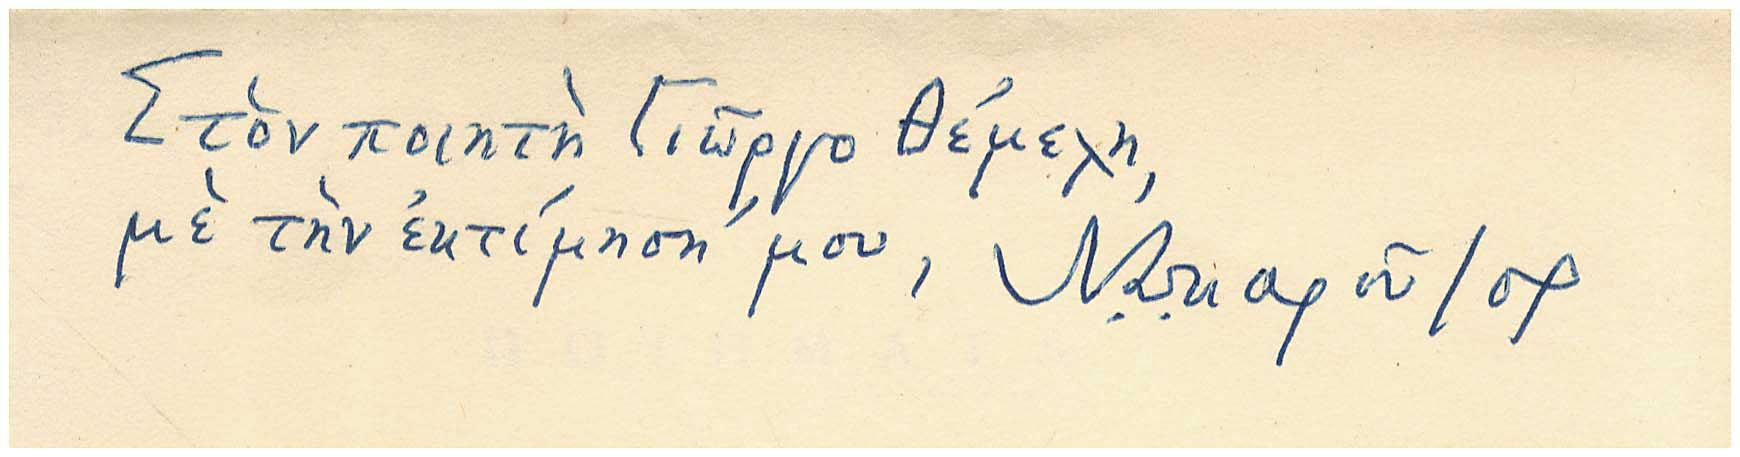 Στὸν ποιητὴ Γιῶργο Θέμελη,
μὲ τὴν ἐκτίμησή μου,